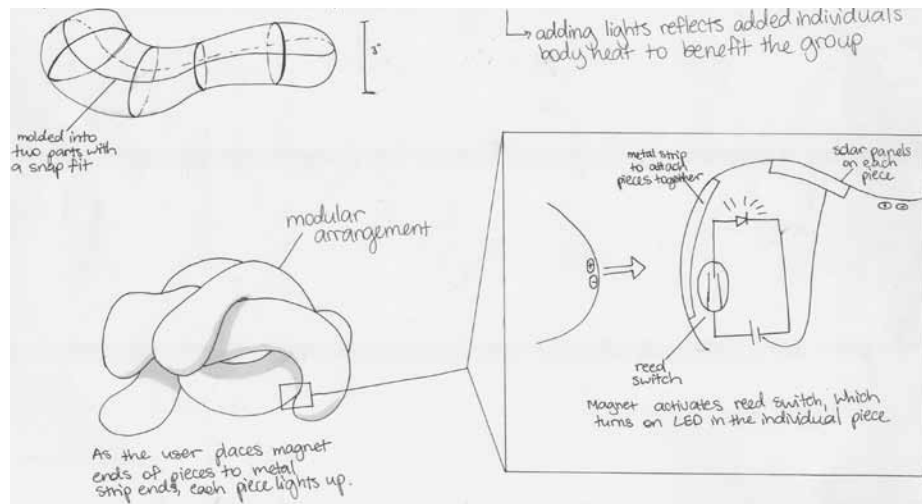 adding lights reflects added individuals
body heat to benefit the group
3"
molded into
two parts with
a snap fit
modular
arrangement
As the user places magnet
ends of pieces to metal
strip ends, each piece lights up.
metal strip
to attach
pieces together
solar panels
on each
piece
+ -
+
-
reed
switch
Magnet activates reed switch, which
turns on LED in the individual piece